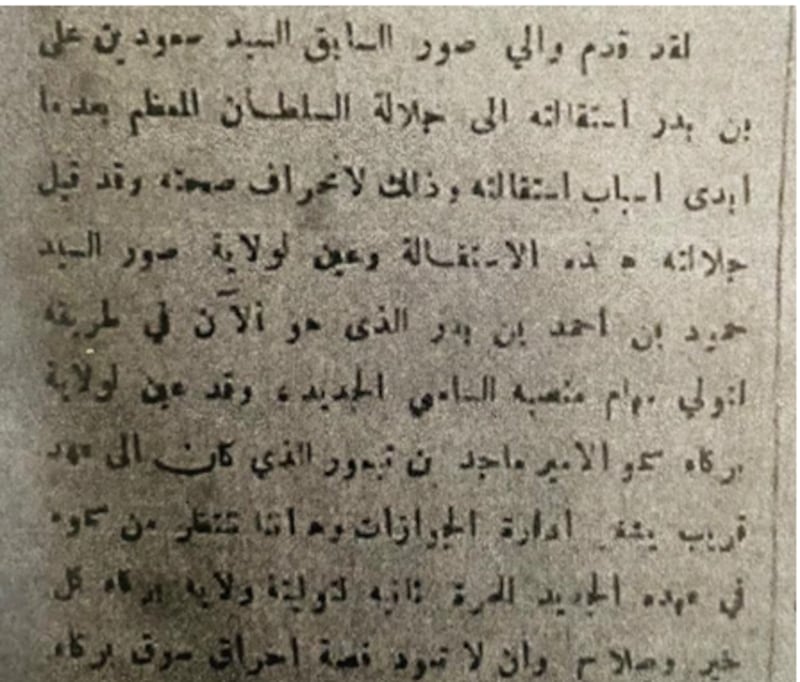 لقد قدم والي صور السابق السيد سعود بن علي
بن بدر استقالته الى جلالة السلطان المعظم بعدما
ابدى اسباب استقالته وذالك لانحراف صحته وقد قبل
جلالته هذه الاستقالة وعين لولاية صور السيد
حميد بن احمد بن بدر الذى هو الآن في طريقه
لتولي مهام منصبه السامي الجديد، وقد عين لولاية
بركاء سمو الامير ماجد بن تيمور الذي كان الى عهد
قريب ادارة الجوازات من سموه
في عهده الجديد للمرة ثانيه لتوليته ولاية بركاء كل
خير وصلاح وان لا تعود قصة احراق سوق بركاء